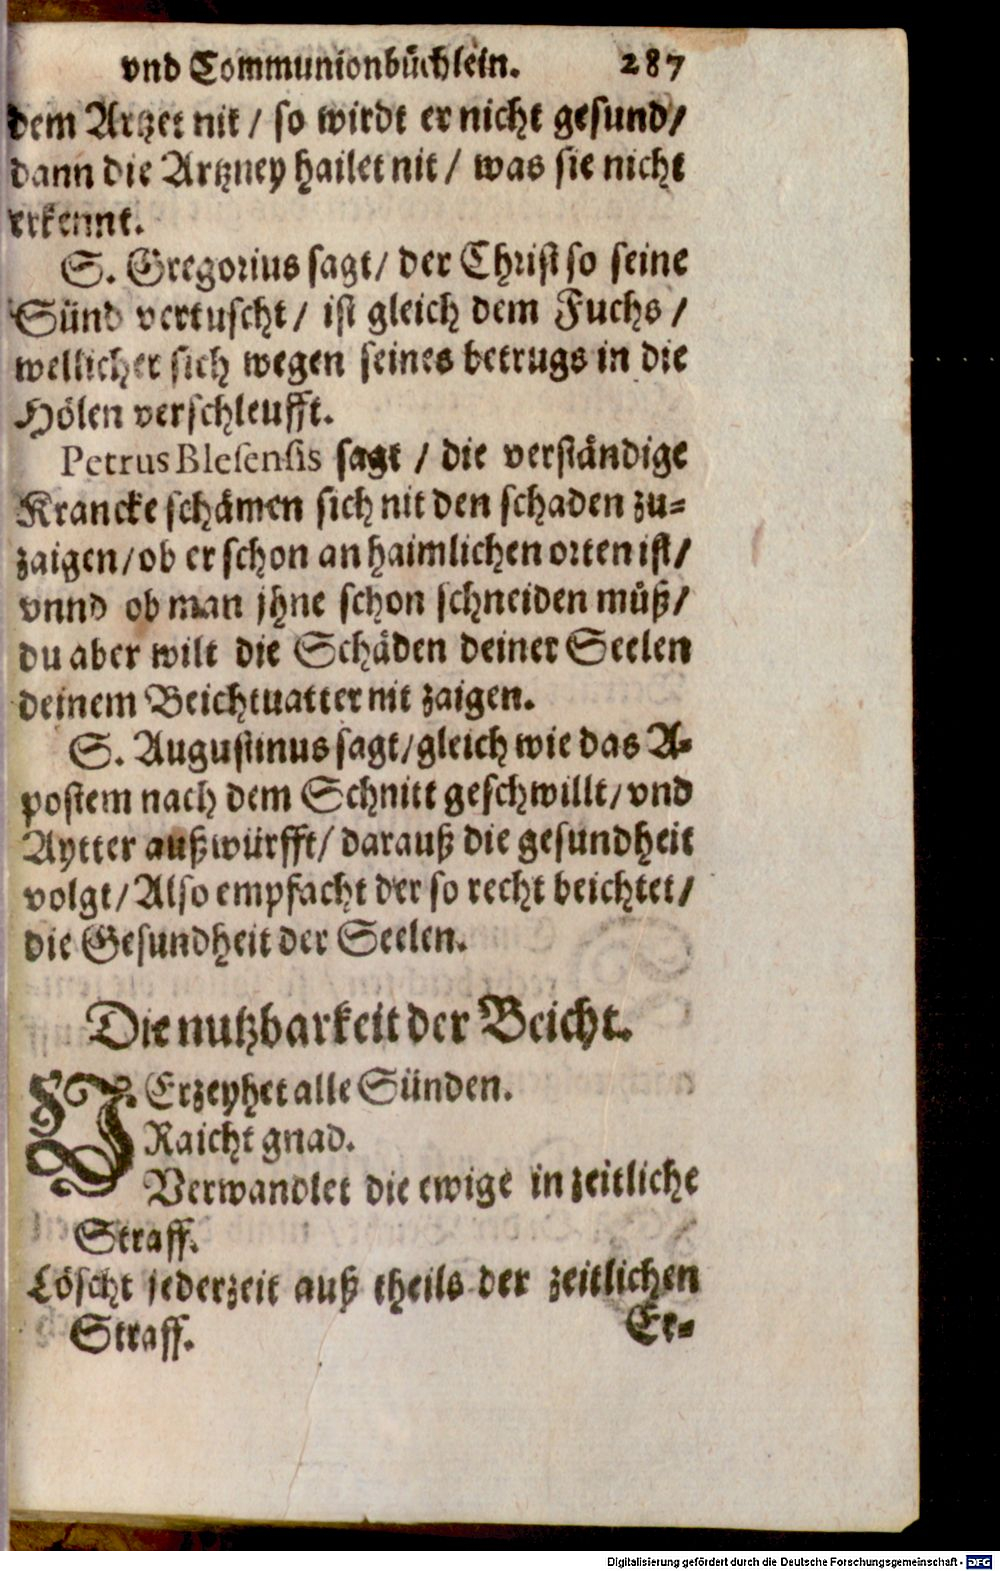 vnd Communionbüchlein. 287
dem Artzet nit / so wirdt er nicht gesund/
dann die Artzney hailet nit / was sie nicht
erkennt.
S. Gregorius sagt/ der Christ so seine
Sünd vertuscht / ist gleich dem Fuchs /
wellicher sich wegen seines betrugs in die
Hölen verschleufft.
Petrus Blesensis sagt / die verständige
Krancke schämen sich nit den schaden zu-
zaigen/ ob er schon an haimlichen orten ist/
vnnd ob man jhne schon schneiden müß/
du aber wilt die Schäden deiner Seelen
deinem Beichtuatter nit zaigen.
S. Augustinus sagt/ gleich wie das A-
postem nach dem Schnitt geschwillt/ vnd
Aytter außwürfft/ darauß die gesundheit
volgt/ Also empfacht der so recht beichtet/
die Gesundheit der Seelen.
Die nutzbarkeit der Beicht.
VErzeyhet alle Sünden.
Raicht gnad.
Verwandlet die ewige in zeitliche
Straff.
Löscht jederzeit auß theils der zeitlichen
Straff. Er-
Digitalisierung gefördert durch die Deutsche Forschungsgemeinschaft - DFG